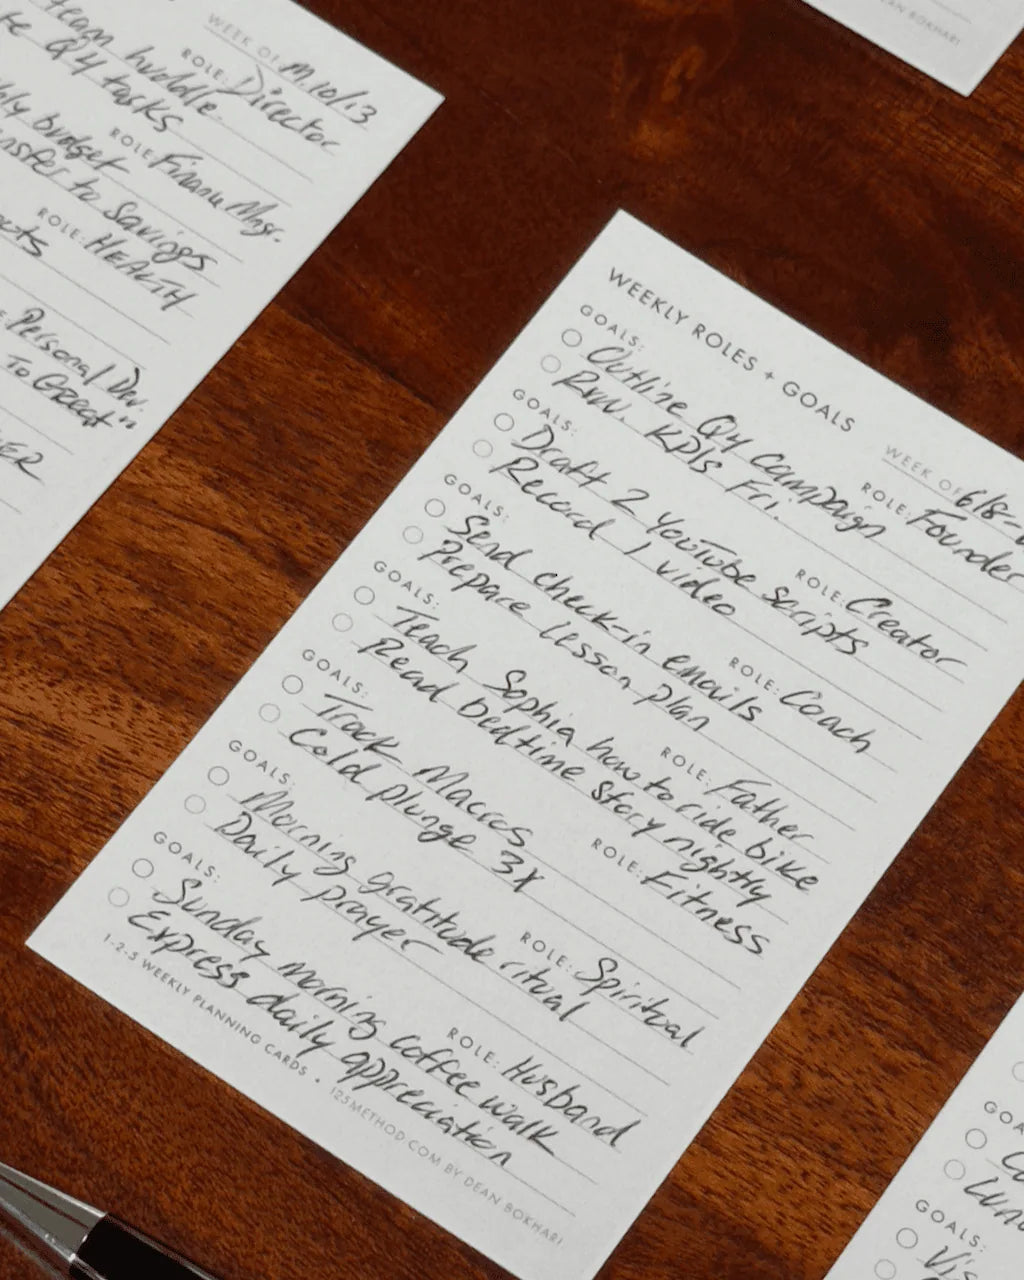 team huddle
Q4 tasks
WEEK OF: M.10/13
ROLE: Director
budget
ROLE: Finance Mngr.
to Savings
ROLE: HEALTH
Personal Dev.
To Great"
WEEKLY ROLES + GOALS
WEEK OF: 6/8-
GOALS:
ROLE: Founder
Outline Q4 Campaign
Rvw. KPIs Fri.
GOALS:
ROLE: Creator
Draft 2 YouTube scripts
Record 1 video
GOALS:
ROLE: Coach
Send check-in emails
Prepare lesson plan
GOALS:
ROLE: Father
Teach Sophia how to ride bike
Read bedtime story nightly
GOALS:
ROLE: Fitness
Track Macros
Cold plunge 3x
GOALS:
ROLE: Spiritual
Morning gratitude ritual
Daily prayer
GOALS:
ROLE: Husband
Sunday morning coffee walk
Express daily appreciation
1-2-3 WEEKLY PLANNING CARDS • 125METHOD.COM BY DEAN BOKHARI
BOKHARI
GOALS: